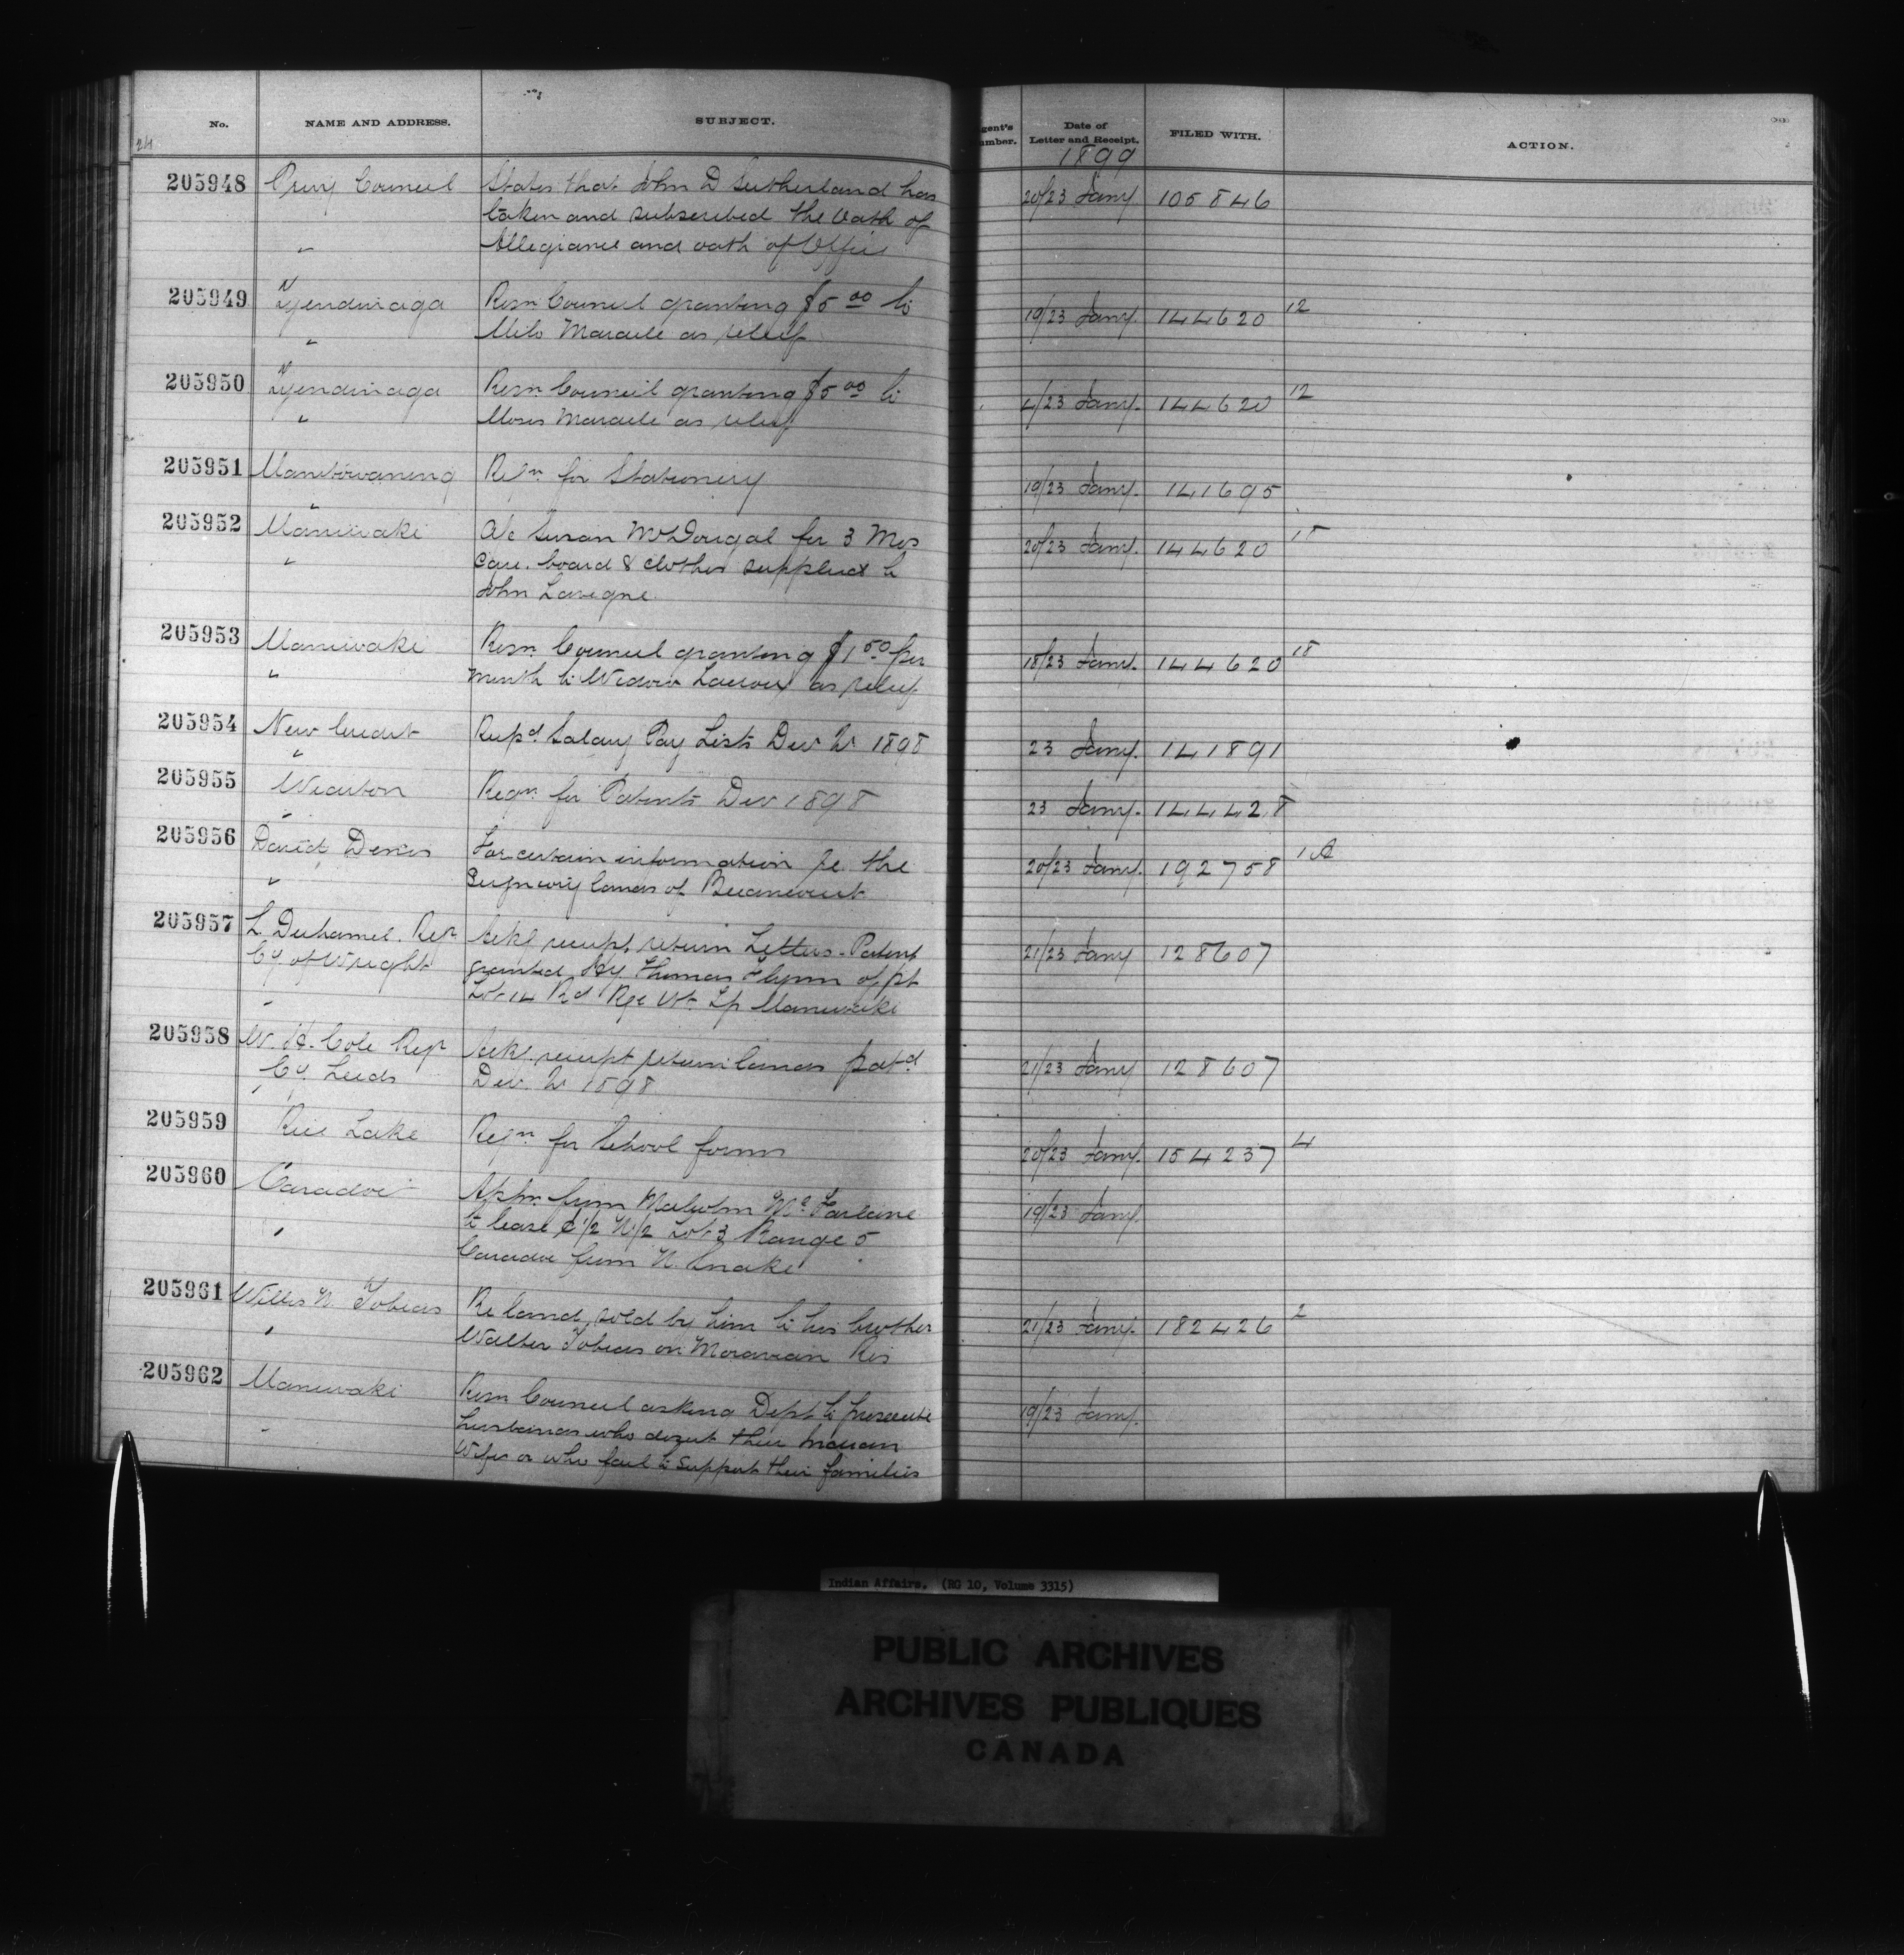 No. NAME AND ADDRESS. SUBJECT. Agent's Number. Date of Letter and Receipt. FILED WITH. ACTION.
24 1899
205948 Privy Council States that John D Sutherland has 20/23 Jany. 105846
taken and subscribed the Oath of
" Allegiance and oath of Office
205949 Tyendinaga Resn Council granting $5 00 to 19/23 Jany. 144620 12
" Milo Maracle as relief
205950 Tyendinaga Resn Council granting $5 00 to 4/23 Jany. 144620 12
" Moses Maracle as relief
205951 Manitowaning Reqn. for Stationery 19/23 Jany. 141695
"
205952 Maniwaki A/c Susan McDougal for 3 Mos 20/23 Jany. 144620
" care. board & clothes supplied to
John Lavigne.
205953 Maniwaki Resn. Council granting $1 50 per 18/23 Jany. 144620 18
" month to Widow as relief
205954 New Credit Recpd. Salary Pay Lists Dec Qr 1898 23 Jany. 141891
"
205955 Wiarton Reqn. for Patents Dec 1898 23 Jany. 144428
"
205956 David Denis For certain information re the 20/23 Jany. 192758 1A
" Seigneury lands of Becancourt
205957 L. Duhamel. Regr Ackg receipt return Letters-Patent 21/23 Jany 128607
Cy. of Wright granted by Thomas Flynn of pt
" Lot 14 Rd Rge Tp Maniwaki
205958 W. H. Cole Regr Ackg. receipt return lands patd 21/23 Jany 128607
Cy. Leeds Dec. Qr 1898
"
205959 Rice Lake Reqn. for School forms 20/23 Jany. 154237 4
205960 Caradoc Appn. from Malcolm Mc Farlane 19/23 Jany.
" to lease S 1/2 N 1/2 Lot 3 Range 5
Caradoc from N. Snake
205961 Willis N Tobias Re land sold by him to his brother 21/23 Jany. 182426 2
" Walter Tobias on Moravian Res
205962 Maniwaki Resn Council asking Dept to prosecute 19/23 Jany.
" husbands who desert their Indian
Wifes or who fail to support their families
Indian Affairs. (RG 10, Volume 3315)
PUBLIC ARCHIVES
ARCHIVES PUBLIQUES
CANADA